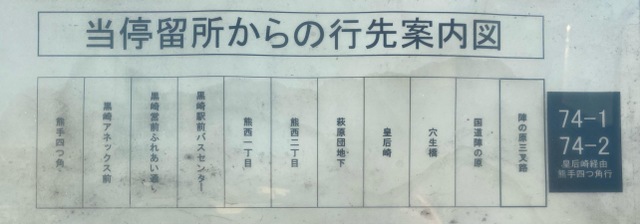 当停留所からの行先案内図
熊手四つ角
黒崎アネックス前
黒崎宮前ふれあい通り
黒崎駅前バスセンター
熊西一丁目
熊西二丁目
萩原団地下
皇后崎
穴生橋
国道陣の原
陣の原三叉路
74-1
74-2
皇后崎経由
熊手四つ角行